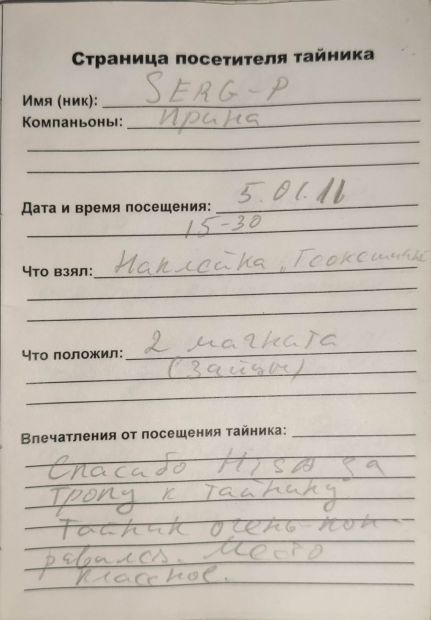 Страница посетителя тайника
Имя (ник): SERG-P
Компаньоны: Ирина
Дата и время посещения: 5.01.11
15-30
Что взял: Наклейка,
Что положил: 2 магната
(Зайцы)
Впечатления от посещения тайника:
Спасибо за
тропу к тайнику
Тайник очень пон-
равился. Место
классное.